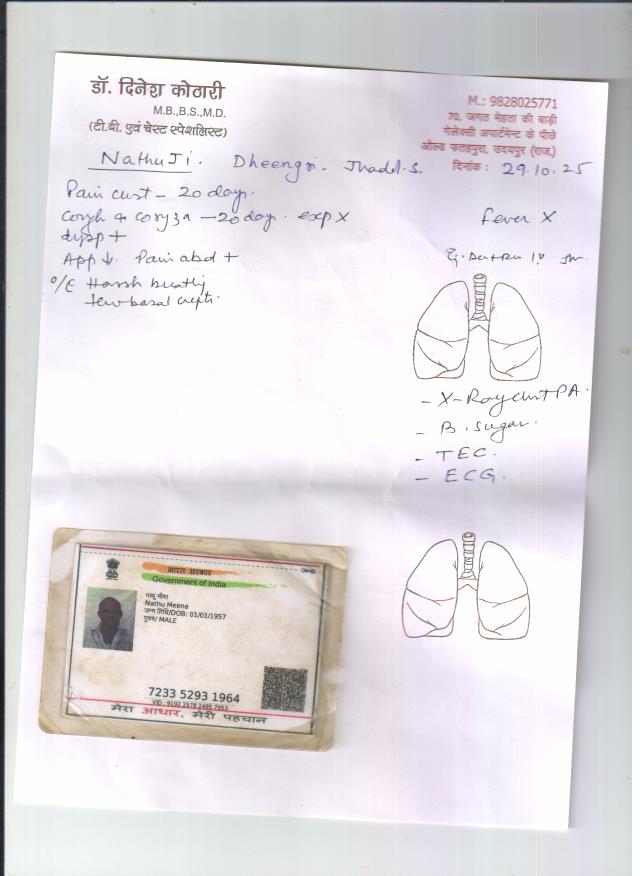 डॉ. दिनेश कोठारी
M.B.,B.S.,M.D.
(टी.बी. एवं चेस्ट स्पेशलिस्ट)
M.: 9828025771
70, जगत मेहता की बाड़ी
गेलेक्सी अपार्टमेन्ट के पीछे
ओल्ड फतहपुरा, उदयपुर (राज.)
दिनांक : 29.10.25
Nathu Ji. Dheengri. Jhadol. S.
Pain chest - 20 day.
Cough & coryza - 20 day. exp X
fever X
dysp +
App ↓ Pain abd +
O/E Harsh breathy
few basal crepts.
- X-Ray chest PA.
- B. Sugar.
- TEC.
- ECG.
भारत सरकार
Government of India
नाथू मीणा
Nathu Meena
जन्म तिथि/DOB: 01/01/1957
पुरुष/ MALE
7233 5293 1964
VID : 9192 2578 2485 7953
मेरा आधार, मेरी पहचान